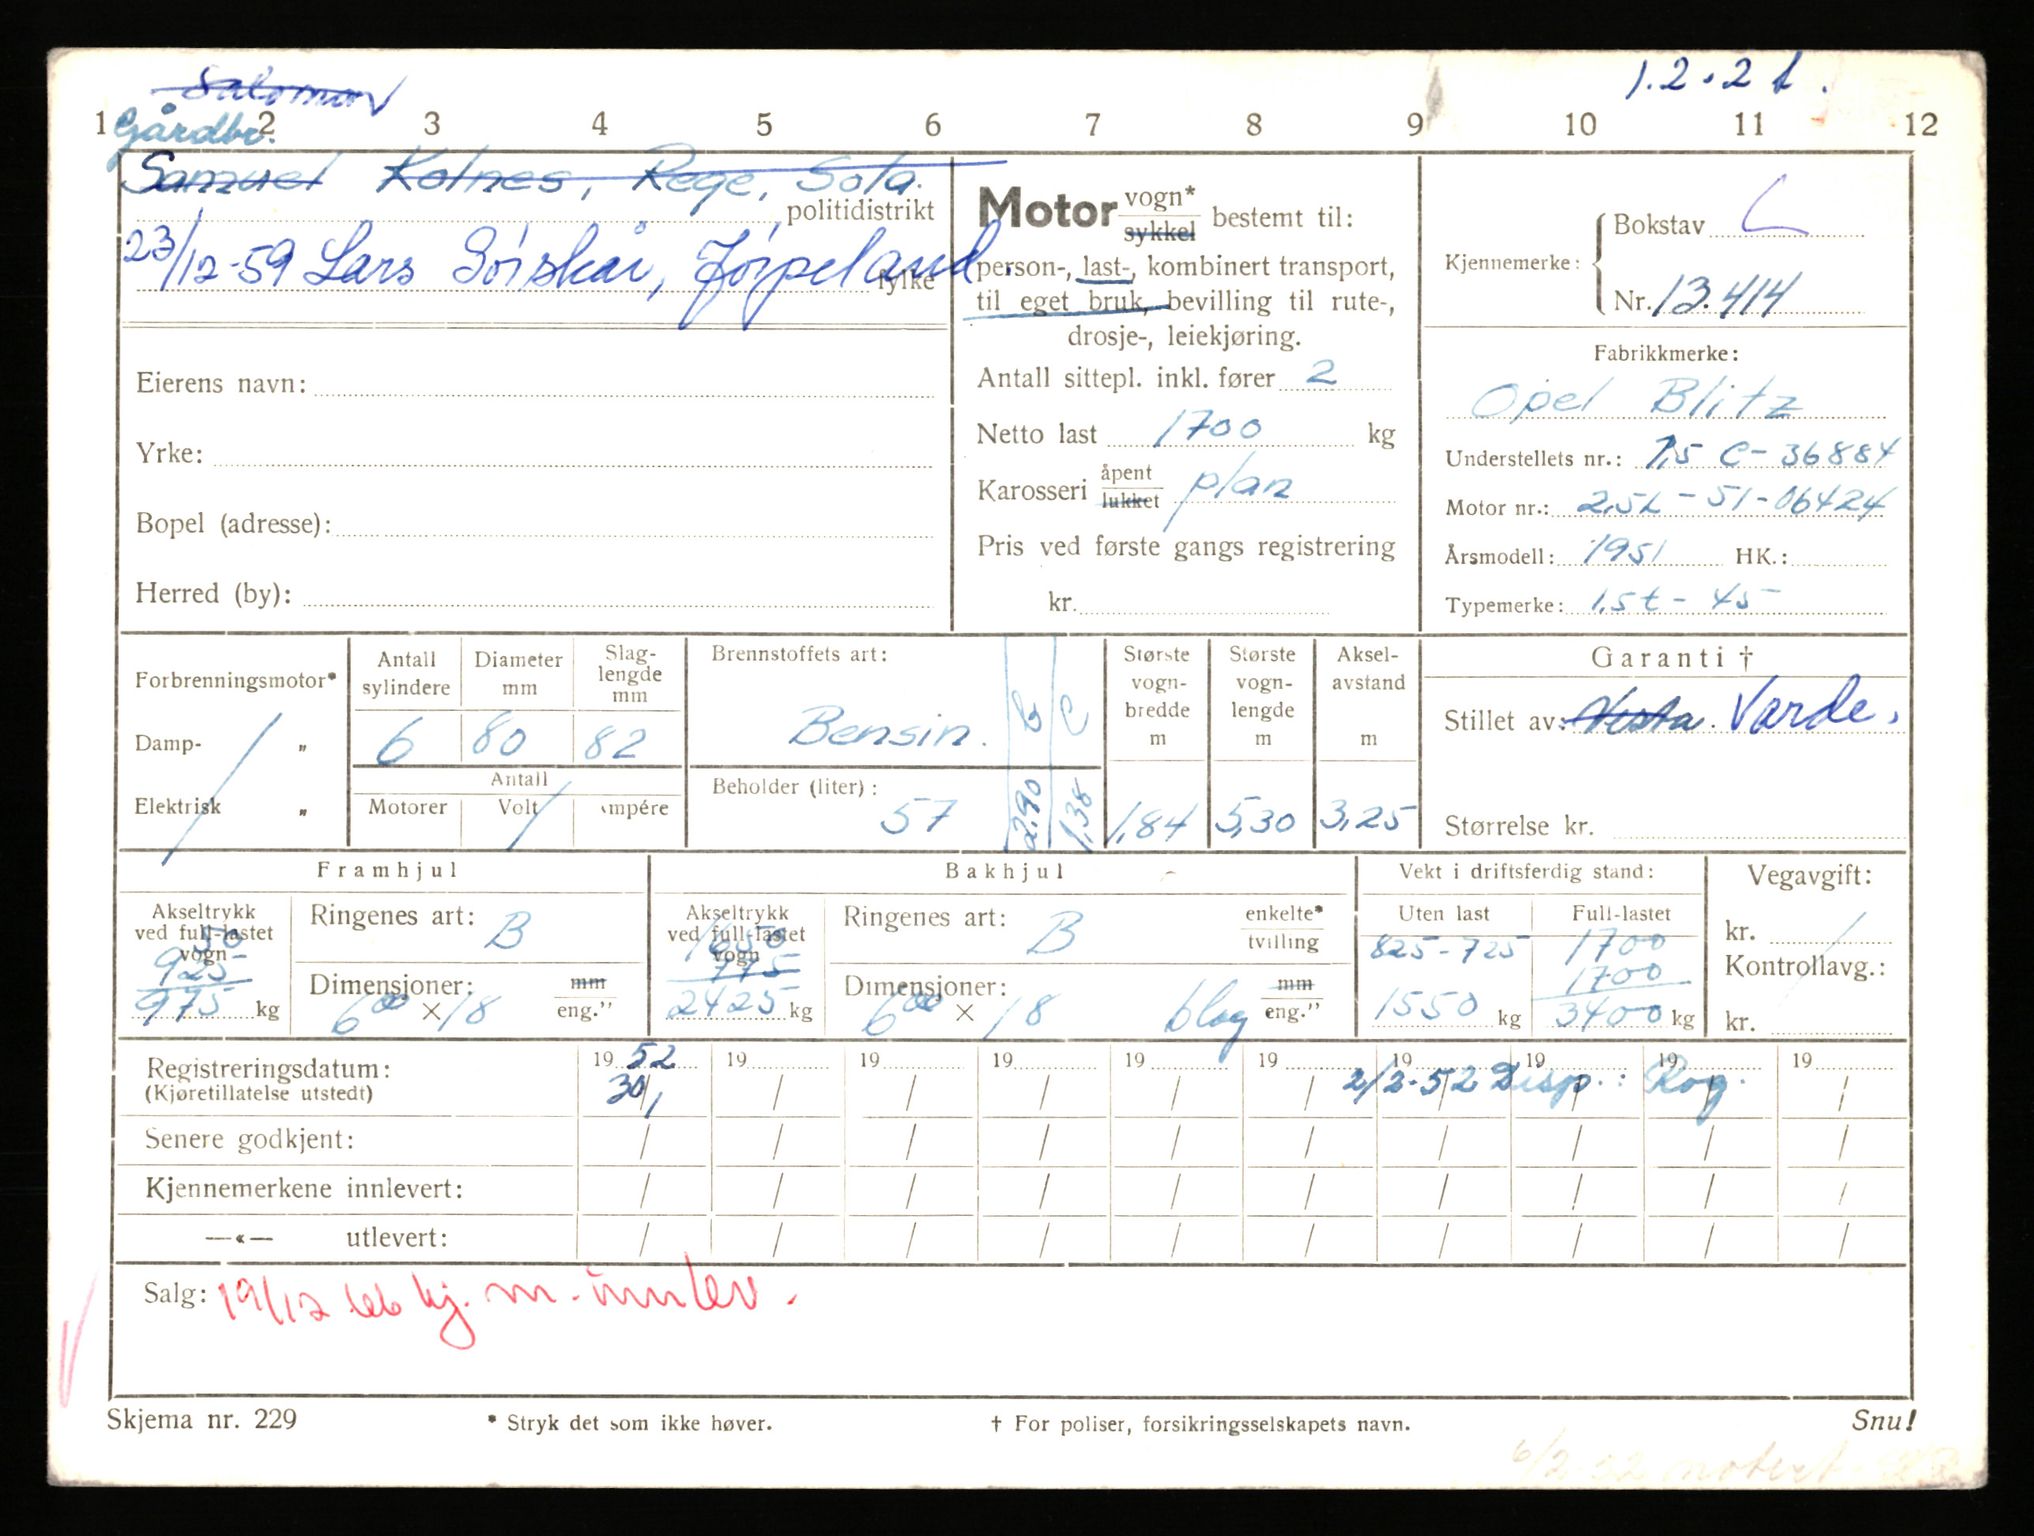 Salomon
1.2.2 t.
1 2 3 4 5 6 7 8 9 10 11 12
Gårdbr.
Samuel Kolnes, Rege, Sola.
politidistrikt
23/12-59 Lars Sørskår, Jørpeland
fylke
Eierens navn:
Yrke:
Bopel (adresse):
Herred (by):
Motor vogn* sykkel bestemt til:
person-, last-, kombinert transport,
til eget bruk, bevilling til rute-,
drosje-, leiekjøring.
Antall sittepl. inkl. fører 2
Netto last 1700 kg
Karosseri åpent lukket plan
Pris ved første gangs registrering
kr.
Kjennemerke: Bokstav L
Nr. 13.414
Fabrikkmerke:
Opel Blitz
Understellets nr.: 1,5 C-36884
Motor nr.: 2,5L-51-06424
Årsmodell: 1951 HK.:
Typemerke: 1,5t-45
Forbrenningsmotor*
Damp- „
Elektrisk „
Antall sylindere 6
Diameter mm 80
Slaglengde mm 82
Antall
Motorer Volt Ampére
Brennstoffets art:
Bensin.
Beholder (liter):
57
b 2,90
c 1,38
Største vogn-bredde m 1,84
Største vogn-lengde m 5,30
Aksel-avstand m 3,25
Garanti †
Stillet av: Vesta. Varde.
Størrelse kr.
Framhjul
Akseltrykk ved full-lastet vogn
50
925
975 kg
Ringenes art: B
Dimensjoner: mm eng."
6⁰⁰ × 18
Bakhjul
Akseltrykk ved full-lastet vogn
1650
775
2425 kg
Ringenes art: B
enkelte* tvilling
Dimensjoner: mm eng."
6⁰⁰ × 18 blag
Vekt i driftsferdig stand:
Uten last Full-lastet
825-725 1700
1700
1550 kg 3400 kg
Vegavgift:
kr.
Kontrollavg.:
kr.
Registreringsdatum: 19 52 19 19 19 19 19 19 19 19 19
(Kjøretillatelse utstedt) 30/1 2/2-52 Disp.: Rog.
Senere godkjent:
Kjennemerkene innlevert:
—«— utlevert:
Salg: 19/12 66 kj. m. innlev.
Skjema nr. 229
* Stryk det som ikke høver.
† For poliser, forsikringsselskapets navn.
Snu!
6/2-52 notert